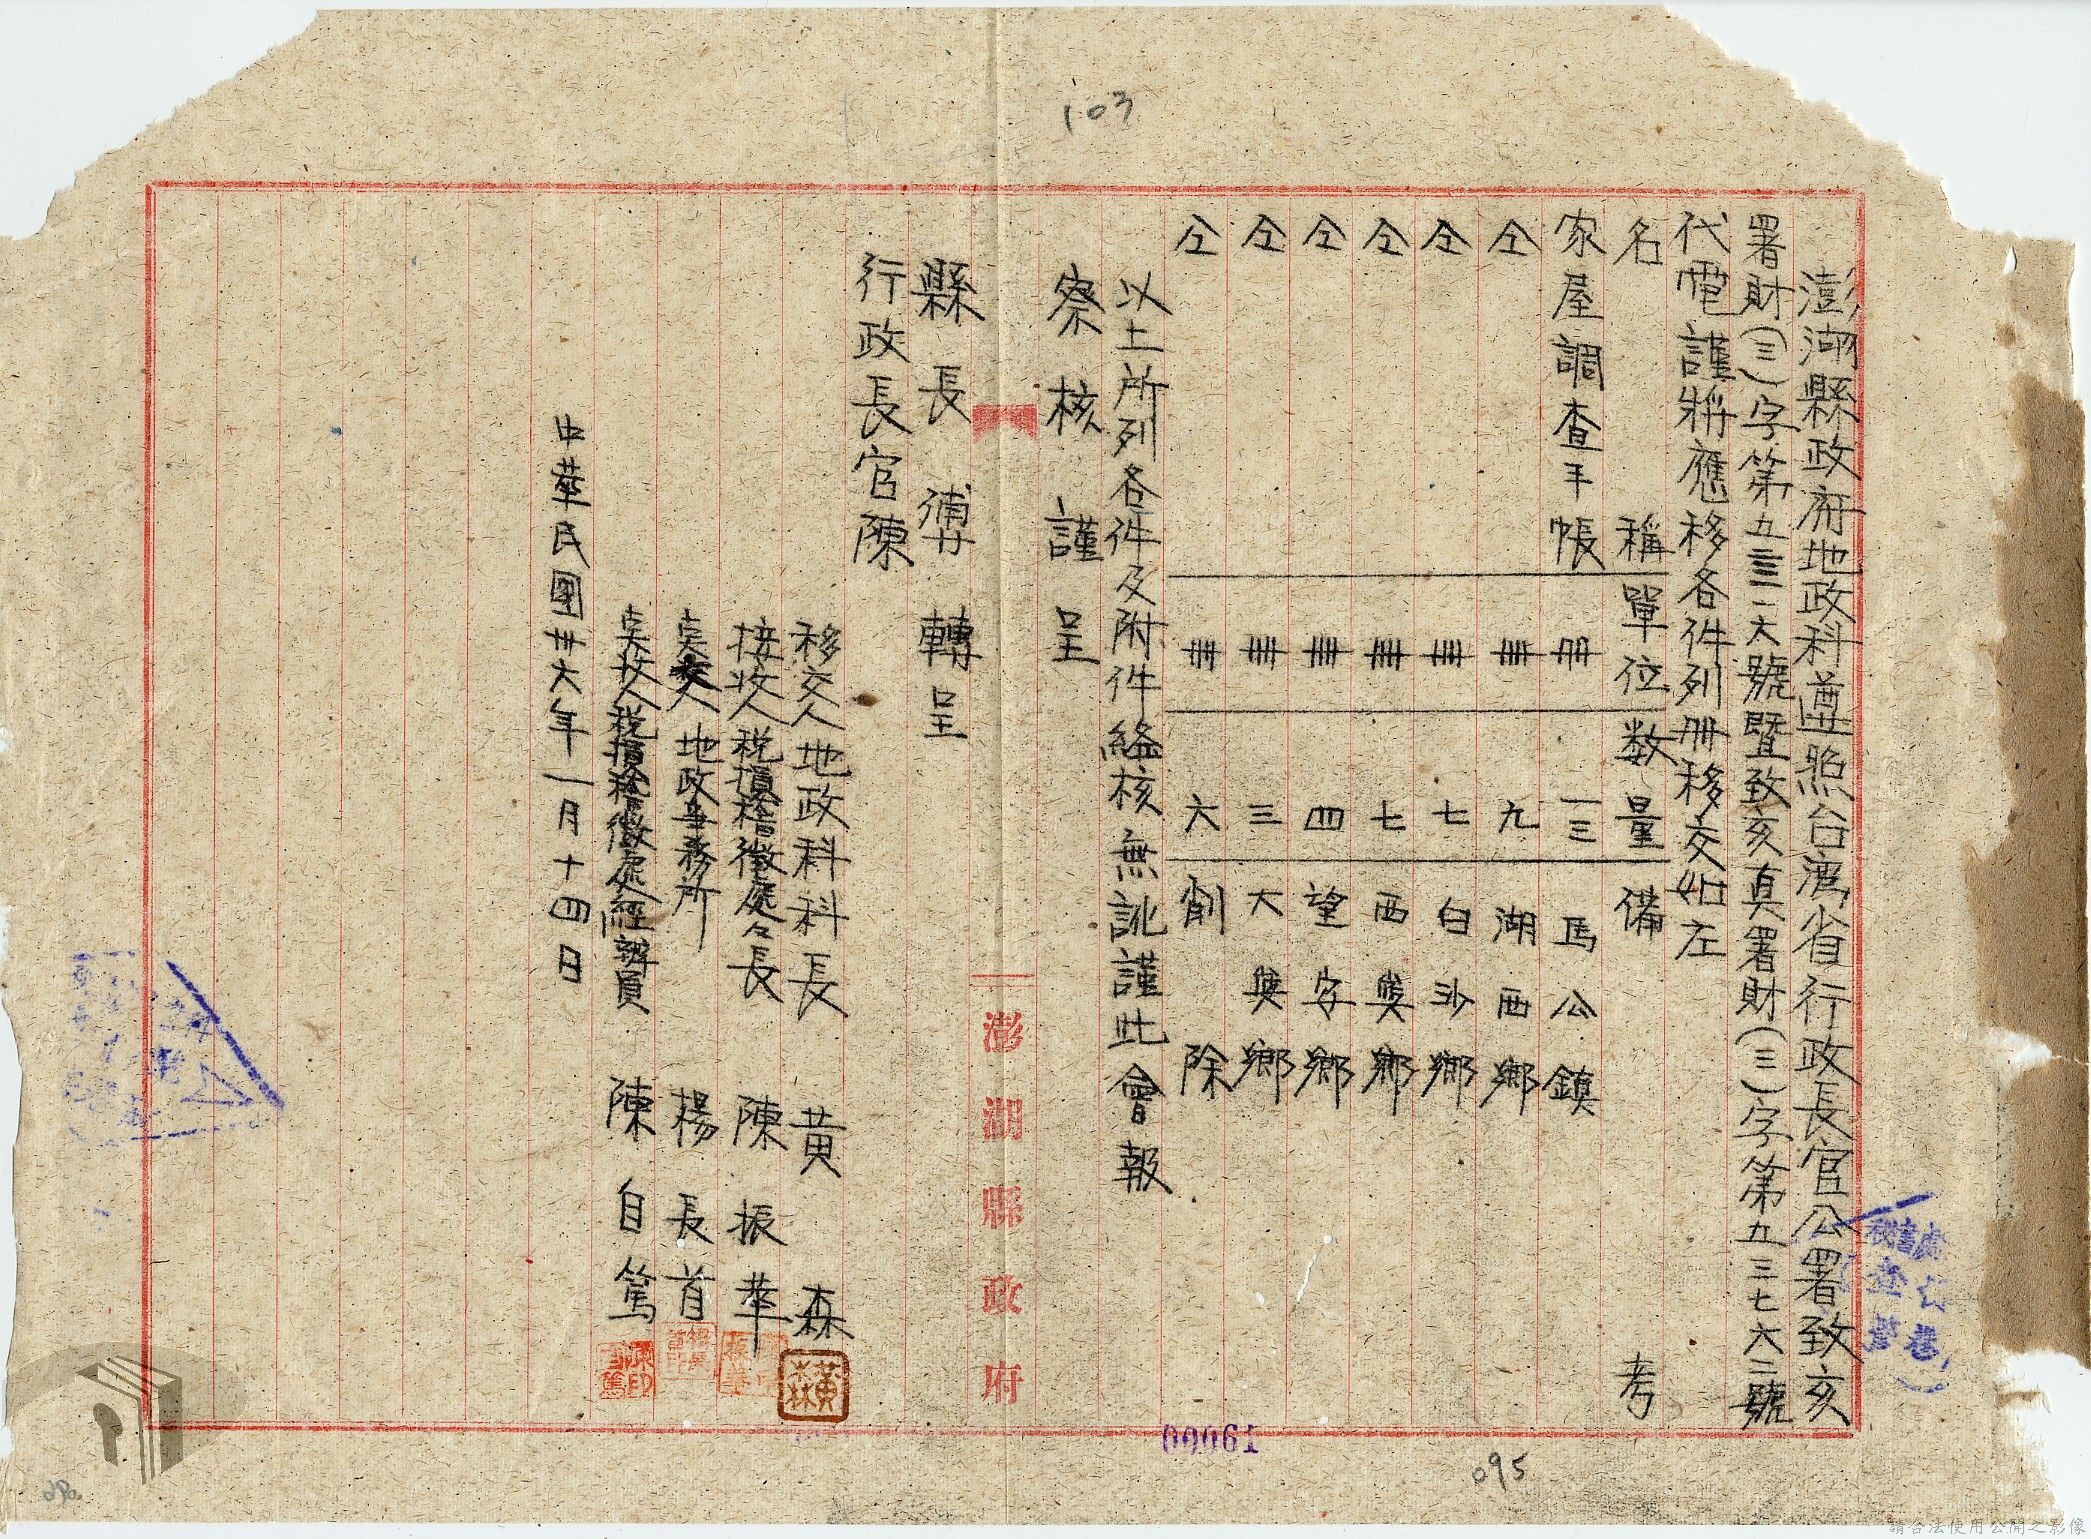 103
澎湖縣政府地政科遵照台灣省行政長官公署致亥
署財(三)字第五三三六號暨致亥真署財(三)字第五三七六三號
代電謹將應移各件列冊移交如左
名 稱 單位 数量 備 考
家屋調查手帳 冊 一三 馬公鎮
仝 冊 九 湖西鄉
仝 冊 七 白沙鄉
仝 冊 七 西嶼鄉
仝 冊 四 望安鄉
仝 冊 三 大嶼鄉
仝 冊 六 削除
以上所列各件及附件經核無訛謹此會報
察核謹呈
澎湖縣政府
縣長傅轉呈
行政長官陳
移交人地政科科長 黃森
接收人税捐稽徵處々長 陳振華
交人地政事務所 楊長首
收人税捐稽徵處經辦員 陳自篤
中華民國卅六年一月十四日
黃森
陳印自篤
00061
095
請合法使用公開之影像